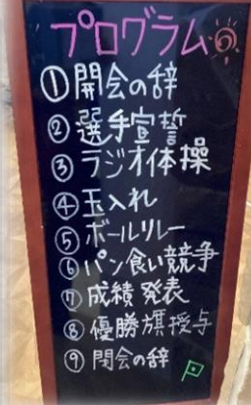 プログラム
① 開会の辞
② 選手宣誓
③ ラジオ体操
④ 玉入れ
⑤ ボールリレー
⑥ パン食い競争
⑦ 成績発表
⑧ 優勝旗授与
⑨ 閉会の辞